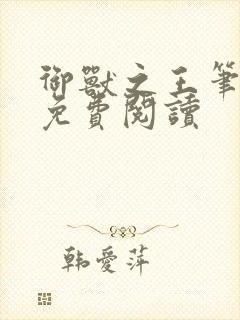 御獸之王筆
免費閱讀
韩愛萍